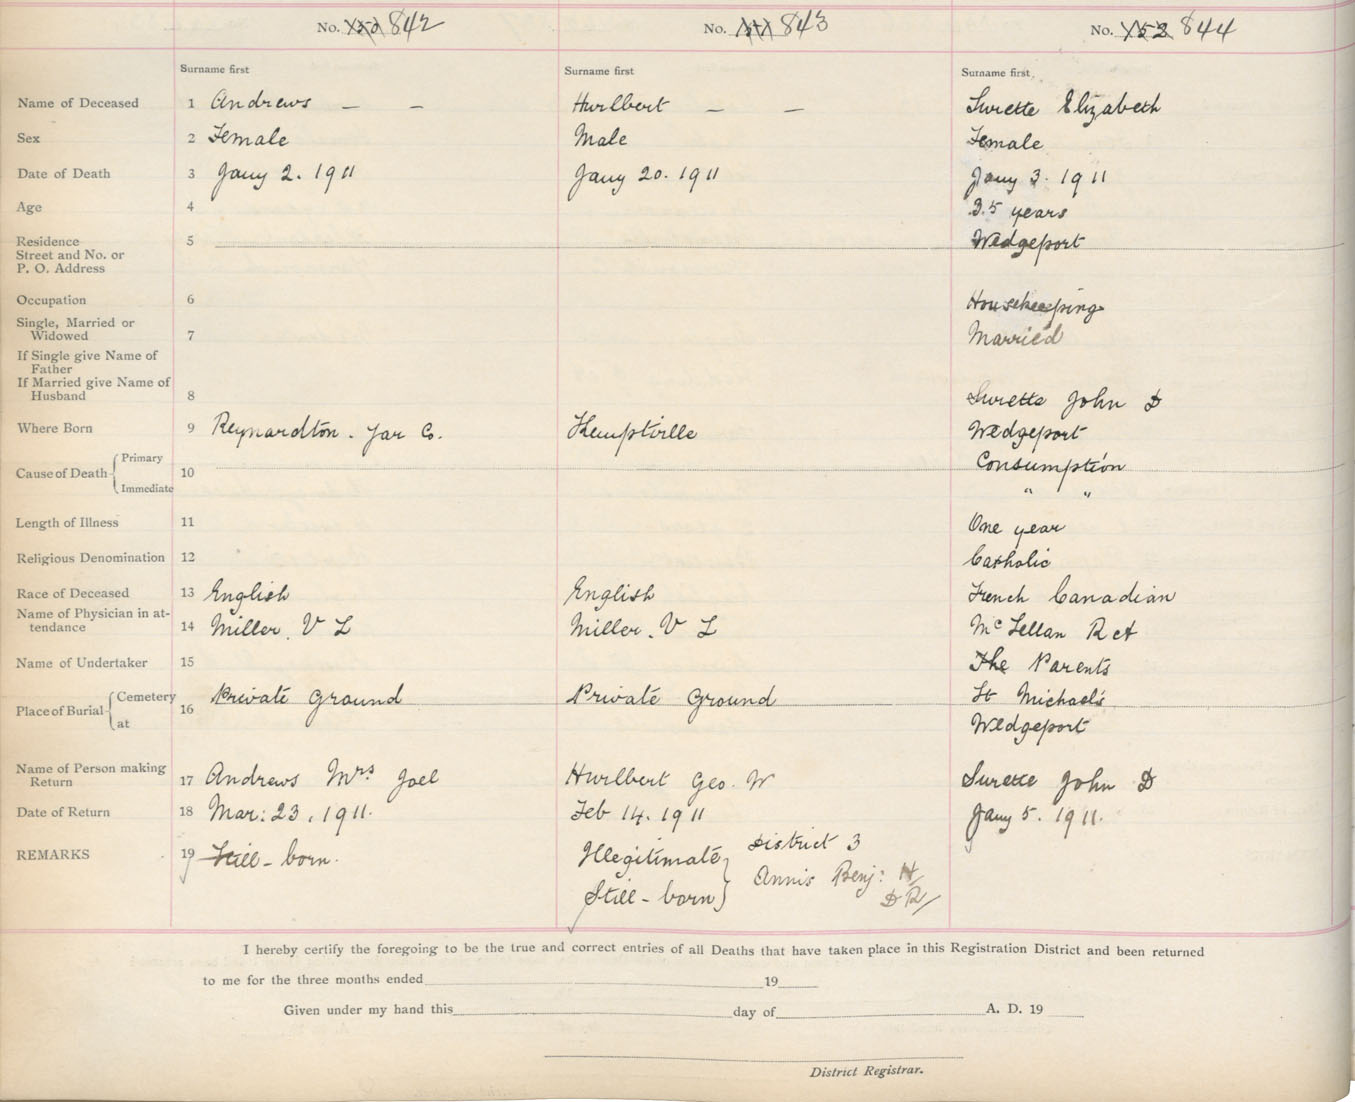 No. 842 No. 843 No. 844
Surname first Surname first Surname first
Name of Deceased 1 Andrews — — Hurlbert — — Surette Elizabeth
Sex 2 Female Male Female
Date of Death 3 Jany 2. 1911 Jany 20. 1911 Jany 3. 1911
Age 4 35 years
Residence 5 Wedgeport
Street and No. or
P. O. Address
Occupation 6 Housekeeping
Single, Married or
Widowed 7 Married
If Single give Name of
Father
If Married give Name of
Husband 8 Surette John D
Where Born 9 Reynardton. Yar Co. Kemptville Wedgeport
Cause of Death { Primary 10 Consumption
Immediate " "
Length of Illness 11 One year
Religious Denomination 12 Catholic
Race of Deceased 13 English English French Canadian
Name of Physician in at-
tendance 14 Miller. V L Miller. V L McLellan R A
Name of Undertaker 15 The Parents
Place of Burial { Cemetery 16 Private Ground Private Ground St Michael's
at Wedgeport
Name of Person making
Return 17 Andrews Mrs Joel Hurlbert Geo. W Surette John D
Date of Return 18 Mar: 23, 1911. Feb 14. 1911 Jany 5. 1911.
REMARKS 19 Still-born. Illegitimate } District 3
Still-born } Annis Benj: H/
D R/
I hereby certify the foregoing to be the true and correct entries of all Deaths that have taken place in this Registration District and been returned
to me for the three months ended 19
Given under my hand this day of A. D. 19
District Registrar.